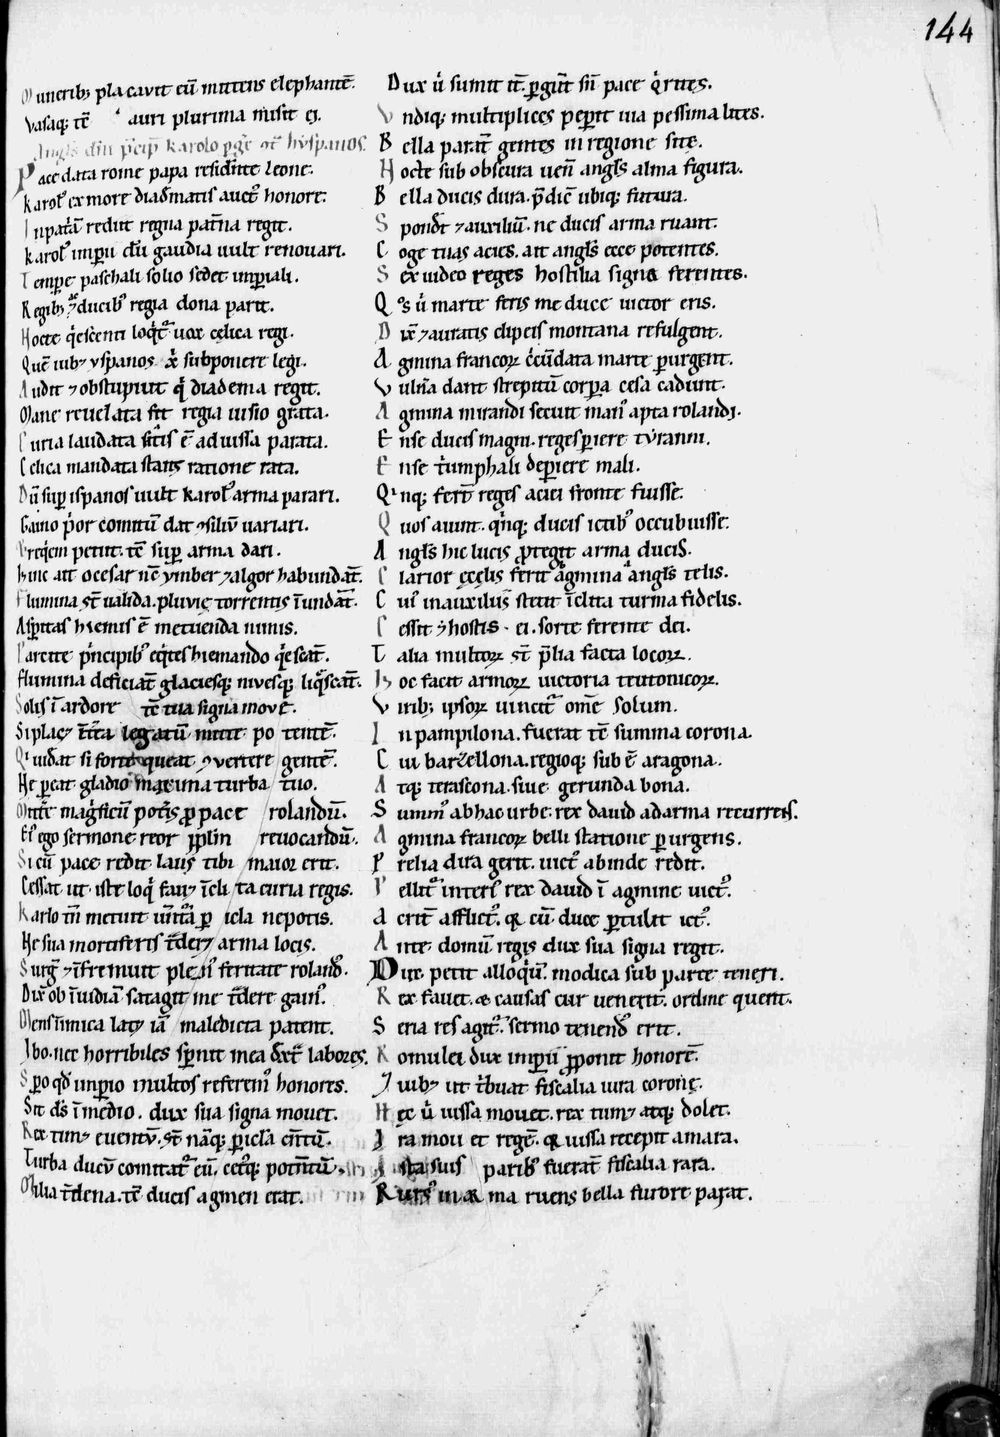 144
Munerib; placavit eū mittens elephantē.
Vasaq; tē auri plurima misit ei.
Angl's dm̄ p̄cip̄ karolo hẏspanos.
Pace data rome papa residente leone.
Karol' ex more diadematis auct' honore.
In pat'ā redut regna pat'na regit.
Karol' imperii dū gaudia uult renouari.
Tempore paschali solio sedet imperiali.
Regib; ⁊ ducib' regia dona parit.
Nocte q'escenti loq't' uox cęlica regi.
Quē iub; yspanos q' subponere legi.
Audit ⁊ obstupuit q' diadema regit.
Mane reuelata fit regia uisio grata.
Curia laudata sit'is ē ad uissa parata.
Celica mandata stans ratione rata.
Dū sup ispanos uult karol' arma parari.
Gaino p'or comitū dat ɔsiliū uariari.
petit. tē sup arma dari.
Hinc ait o cesar nē ymber ⁊ algor habundat̄.
Flumina st̄ ualida. pluvię torrentis īundat̄.
Aspitas hiemis ē metuenda nimis.
Parcite p'ncipib' eq'tes hiemando q'escat̄.
Flumina deficiat̄ glaciesq; nivesq; liq'scat̄.
Solis ī ardore tē tua signa movē.
Si placꝫ legatū mitte po tentē.
Qui uidat si forte queat ɔvertere gentē.
Ne pereat gladio maxima turba tuo.
Mitte mag'ficū pot'is p pace rolandū.
Et' ego sermone reor pplm̄ reuocandū.
Si cū pace redit laus tibi maior erit.
Cessat ut iste loq' fauꝫ īcli ta curia regis.
Karlo tm̄ metuit p icla nepotis.
Ne sua mortiferis t'derꝫ arma locis.
Surg' ⁊ īfremuit plen' feritate roland'.
Dix' ob īuidiā satagit me t'dere gain'.
Mens inimica latꝫ iā maledicta patent.
Ibo. nec horribiles sp̄nit mea labores.
Spo qd imperio multos referem' honores.
Sit ds ī medio. dux sua signa mouet.
Rex timꝫ eventū. st̄ nāq; picla
Turba ducū comitat' eū. potm̄tū.
Milia tē ducis agmen erat.
Dux ū sumit it̄. p̄gūt sn̄ pace q'rites.
Undiq; multiplices peperit uia pessima lites.
Bella parat̄ gentes in regione site.
Nocte sub obscura uen̄ angl's alma figura.
Bella ducis dura. p̄dic̄ ubiq; futura.
Spondet ⁊ auxiliū. ne ducis arma ruant.
Coge tuas acies. ait angl's ecce potentes.
Sex uideo reges hostilia signa ferentes.
Q's ū marte feris me duce uictor eris.
Dix̄ ⁊ auratis clipeis montana refulgent.
Agmina francoꝝ c'cūdata marte p urgent.
Vuln̄a dant strepitū corpa cesa cadunt.
Agmina mirandi secuit man' apta rolandi.
Ense ducis magni. reges periere tẏranni.
Ense t'umphali deperiere mali.
Qinq; fer̄t reges aciei fronte fuisse.
Quos aiunt. q'nq; ducis ictib' occubuisse.
Angl's hic lucis protegit arma ducis.
Clarior cęlis ferit agmina angl's telis.
Cui' in auxiliis stetit īclita turma fidelis.
Cessit ⁊ hostis. ei. sorte ferente dei.
Talia multoꝝ st̄ p̄lia facta locoꝝ.
Hoc facit armoꝝ uictoria teutonicoꝝ.
Virib; ipsoꝝ uincit' om̄e solum.
In pampilona. fuerat tē summa corona.
Cui barzellona. regioq; sub ē aragona.
Atq; terascona. siue gerunda bona.
Summ' ab hac urbe. rex dauid ad arma recurrens.
Agmina francoꝝ belli statione p urgens.
Prelia dira gerit. uict' abinde redit.
Pellit' inters' rex dauid ī agmine uict'.
acrit̄ afflict'. q cū duce ptulit ict'.
Ante domū regis dux sua signa regit.
Dux petit alloq'ū. modica sub parte teneri.
Rex fauet. & causas cur venerit. ordine querit.
Seria res agit'. sermo tenend' erit.
Romulei dux imperii pponit honorē.
Iubꝫ ut t'buat fiscalia iura coronę.
Nec ū uissa mouet. rex timꝫ atq; dolet.
Ira mou et regē. q uissa recepit amara.
Ista suis parib' fuerat̄ fiscalia rara.
Rurs' in ar ma ruens bella furore parat.